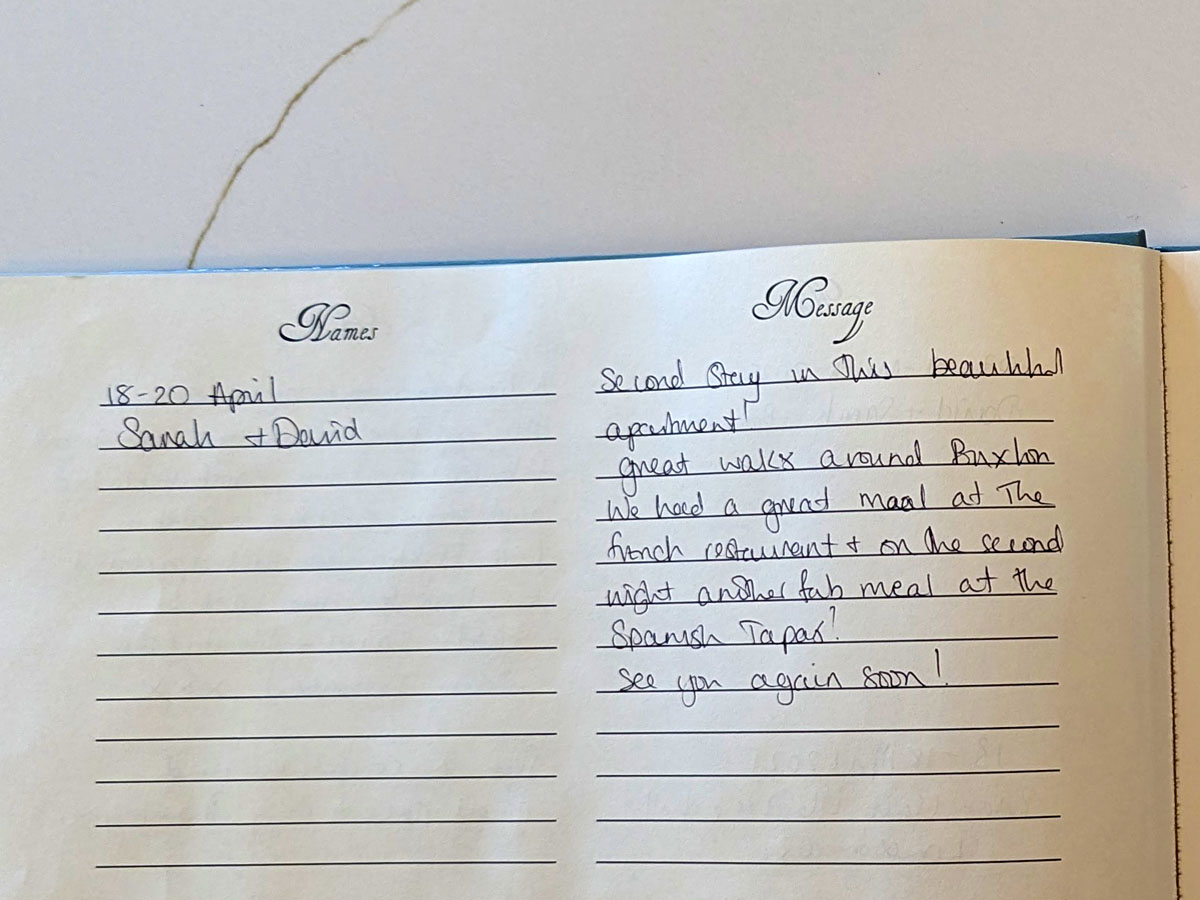 Names
18-20 April
Sarah + David
Message
Second Stay in this beautiful
apartment!
great walks around Buxton
We had a great meal at The
french restaurant + on the second
night another fab meal at the
Spanish Tapas!
See you again soon!